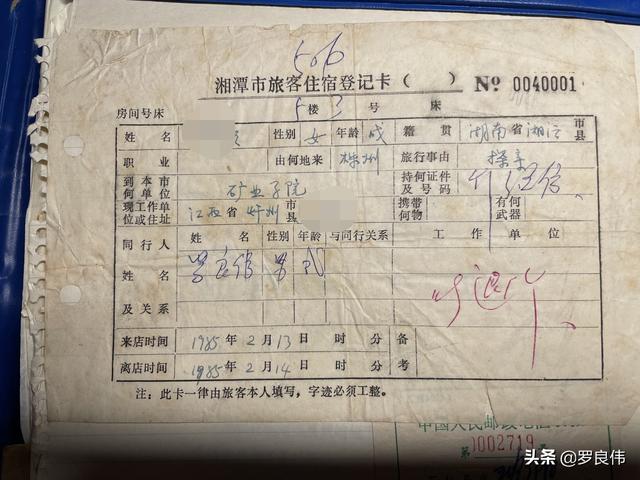 506
湘潭市旅客住宿登记卡（ ） № 0040001
房间号床 5 楼 3 号 床
姓名 性别 女 年龄 成 籍贯 湖南 省 湘潭 市县
职业 由何地来 株州 旅行事由 探亲
到本市何单位 矿业学院 持何证件及号码
现工作单位或住址 江西 省 市县 携带何物 有何武器
同行人 姓名 性别 年龄 与同行关系 工作单位
姓名 男
及关系
来店时间 1985 年 2 月 13 日 时 分 备
离店时间 1985 年 2 月 14 日 时 分 考
注：此卡一律由旅客本人填写，字迹必须工整。
中国人民邮政
第 0002719 号
头条 @罗良伟